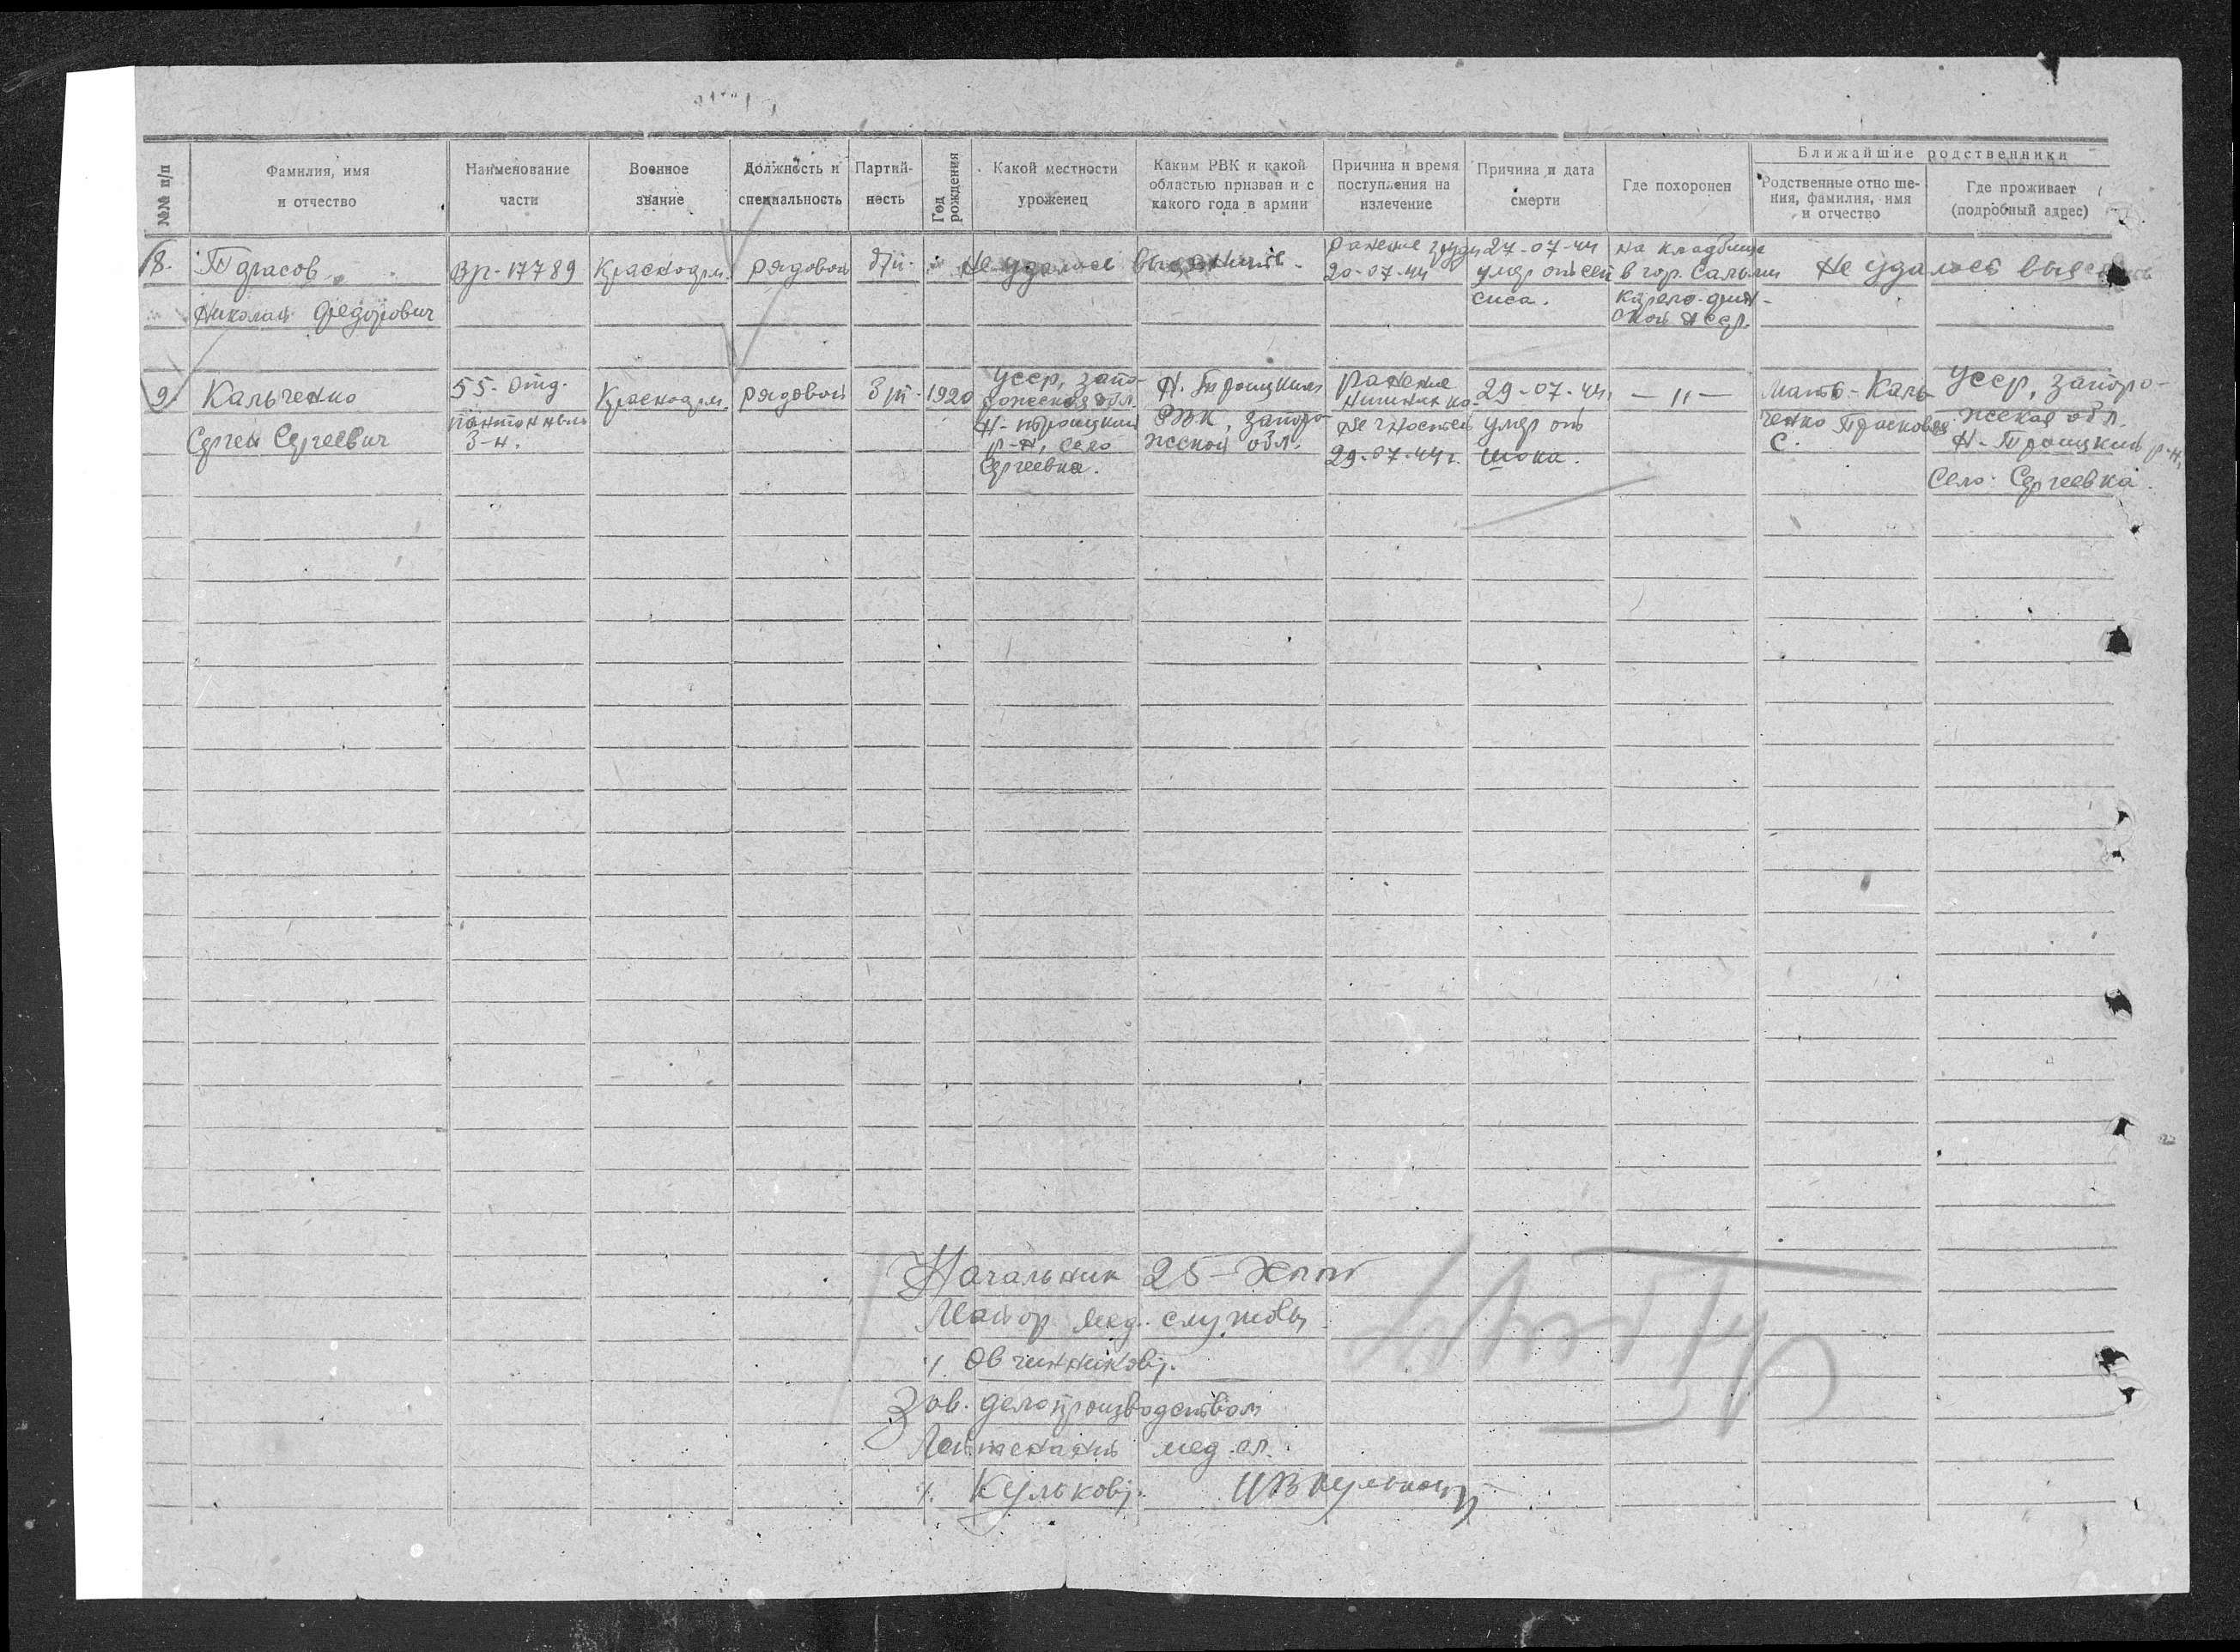 №№ п/п
Фамилия, имя
и отчество
Наименование
части
Военное
звание
Должность и
специальность
Партий-
ность
Год
рождения
Какой местности
уроженец
Каким РВК и какой
областью призван и с
какого года в армии
Причина и время
поступления на
излечение
Причина и дата
смерти
Где похоронен
Ближайшие родственники
Родственные отно ше-
ния, фамилия, имя
и отчество
Где проживает
(подробный адрес)
8. Тарасов
Николай Федорович
Вр-17789
Красноарм.
рядовой
б/п.
Не удалось выяснить.
Ранение груди
20-07-44
27-07-44
умер от сеп
сиса.
на кладбище
в гор. Сальми
Карело-фин-
ской ССР.
Не удалось выяснить
9. Кальченко
Сергей Сергеевич
55-отд.
понтонный
б-н.
Красноарм.
рядовой
б/п.
1920
УССР, Запо-
рожская обл.
Н-Троицкий
р-н, село
Сергеевка.
Н.Троицким
РВК, Запоро-
жской обл.
Ранение
нижних ко-
нечностей
29.07.44г.
29-07-44г.
умер от
шока.
— 〃 —
Мать - Каль-
ченко Прасковья
С.
УССР, Запоро-
жская обл.
Н-Троицкий р-н,
Село Сергеевка.
Начальник 25-ХППГ
Майор мед. службы
/. Овчинников/.
Зав. делопроизводством
Лейтенант мед. сл.
/. Кульков/.